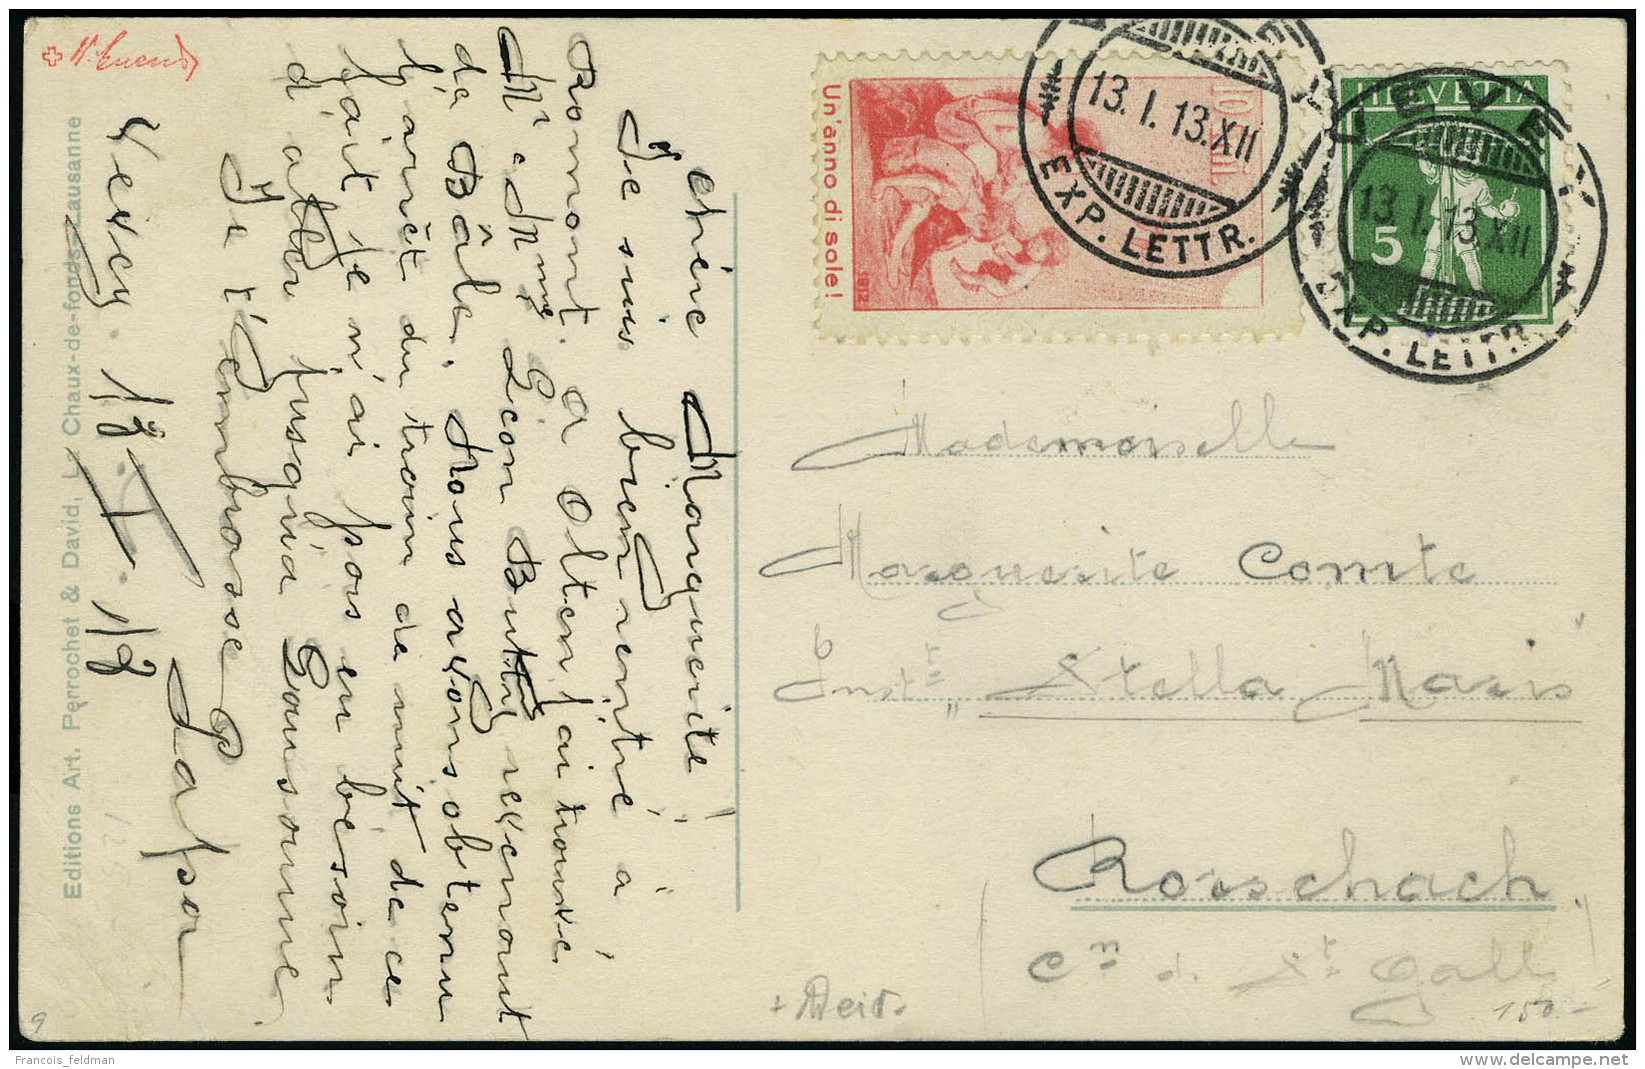 Vevey. 13. I. 13
Chère Marguerite
Je suis bien rentré à
Romont. à Olten j'ai trouvé
Mr & Mme Léon Butty revenant
de Bâle. Nous avons obtenu
l'arrêt du train de nuit de ce
fait je n'ai pas eu besoin
d'aller jusqu'à Lausanne
Je t'embrasse
Editions Art. Perrochet & David, La Chaux-de-fonds-Lausanne
10
Un'anno di sole!
1912
VEVEY
13. I. 13. XII
EXP. LETTR.
HELVETIA
5
VEVEY
13. I. 13. XII
EXP. LETTR.
Mademoiselle
Marguerite Comte
Instt "Stella Maris"
Rorschach
(Cn de St Gall)
150.-
9
Francois_feldman
delcampe.net